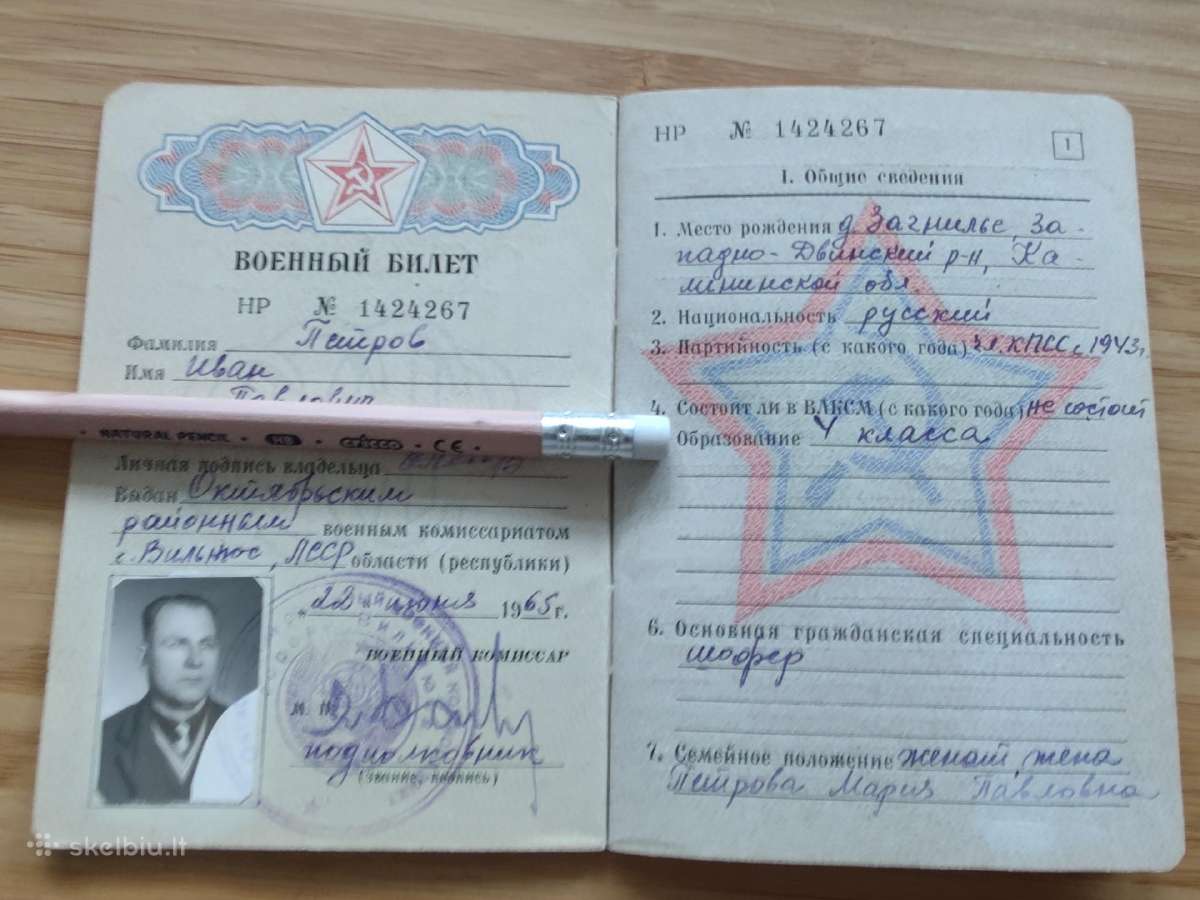 ВОЕННЫЙ БИЛЕТ
НР № 1424267
Фамилия Петров
Имя Иван
Павлович
NATURAL PENCIL · HB · · CE ·
Личная подпись владельца
Выдан Октябрьским
районным военным комиссариатом
г. Вильнюс, ЛССР области (республики)
"22" июня 1965 г.
ВОЕННЫЙ КОМИССАР
М. П.
подполковник
(звание, подпись)
skelbiu.lt
НР № 1424267
1
I. Общие сведения
1. Место рождения д. Загнилье, За-
падно-Двинский р-н, Ка-
лининской обл.
2. Национальность русский
3. Партийность (с какого года) чл. КПСС с 1943 г.
4. Состоит ли в ВЛКСМ (с какого года) не состоит
Образование 4 класса
6. Основная гражданская специальность
шофер
7. Семейное положение женат, жена
Петрова Мария Павловна